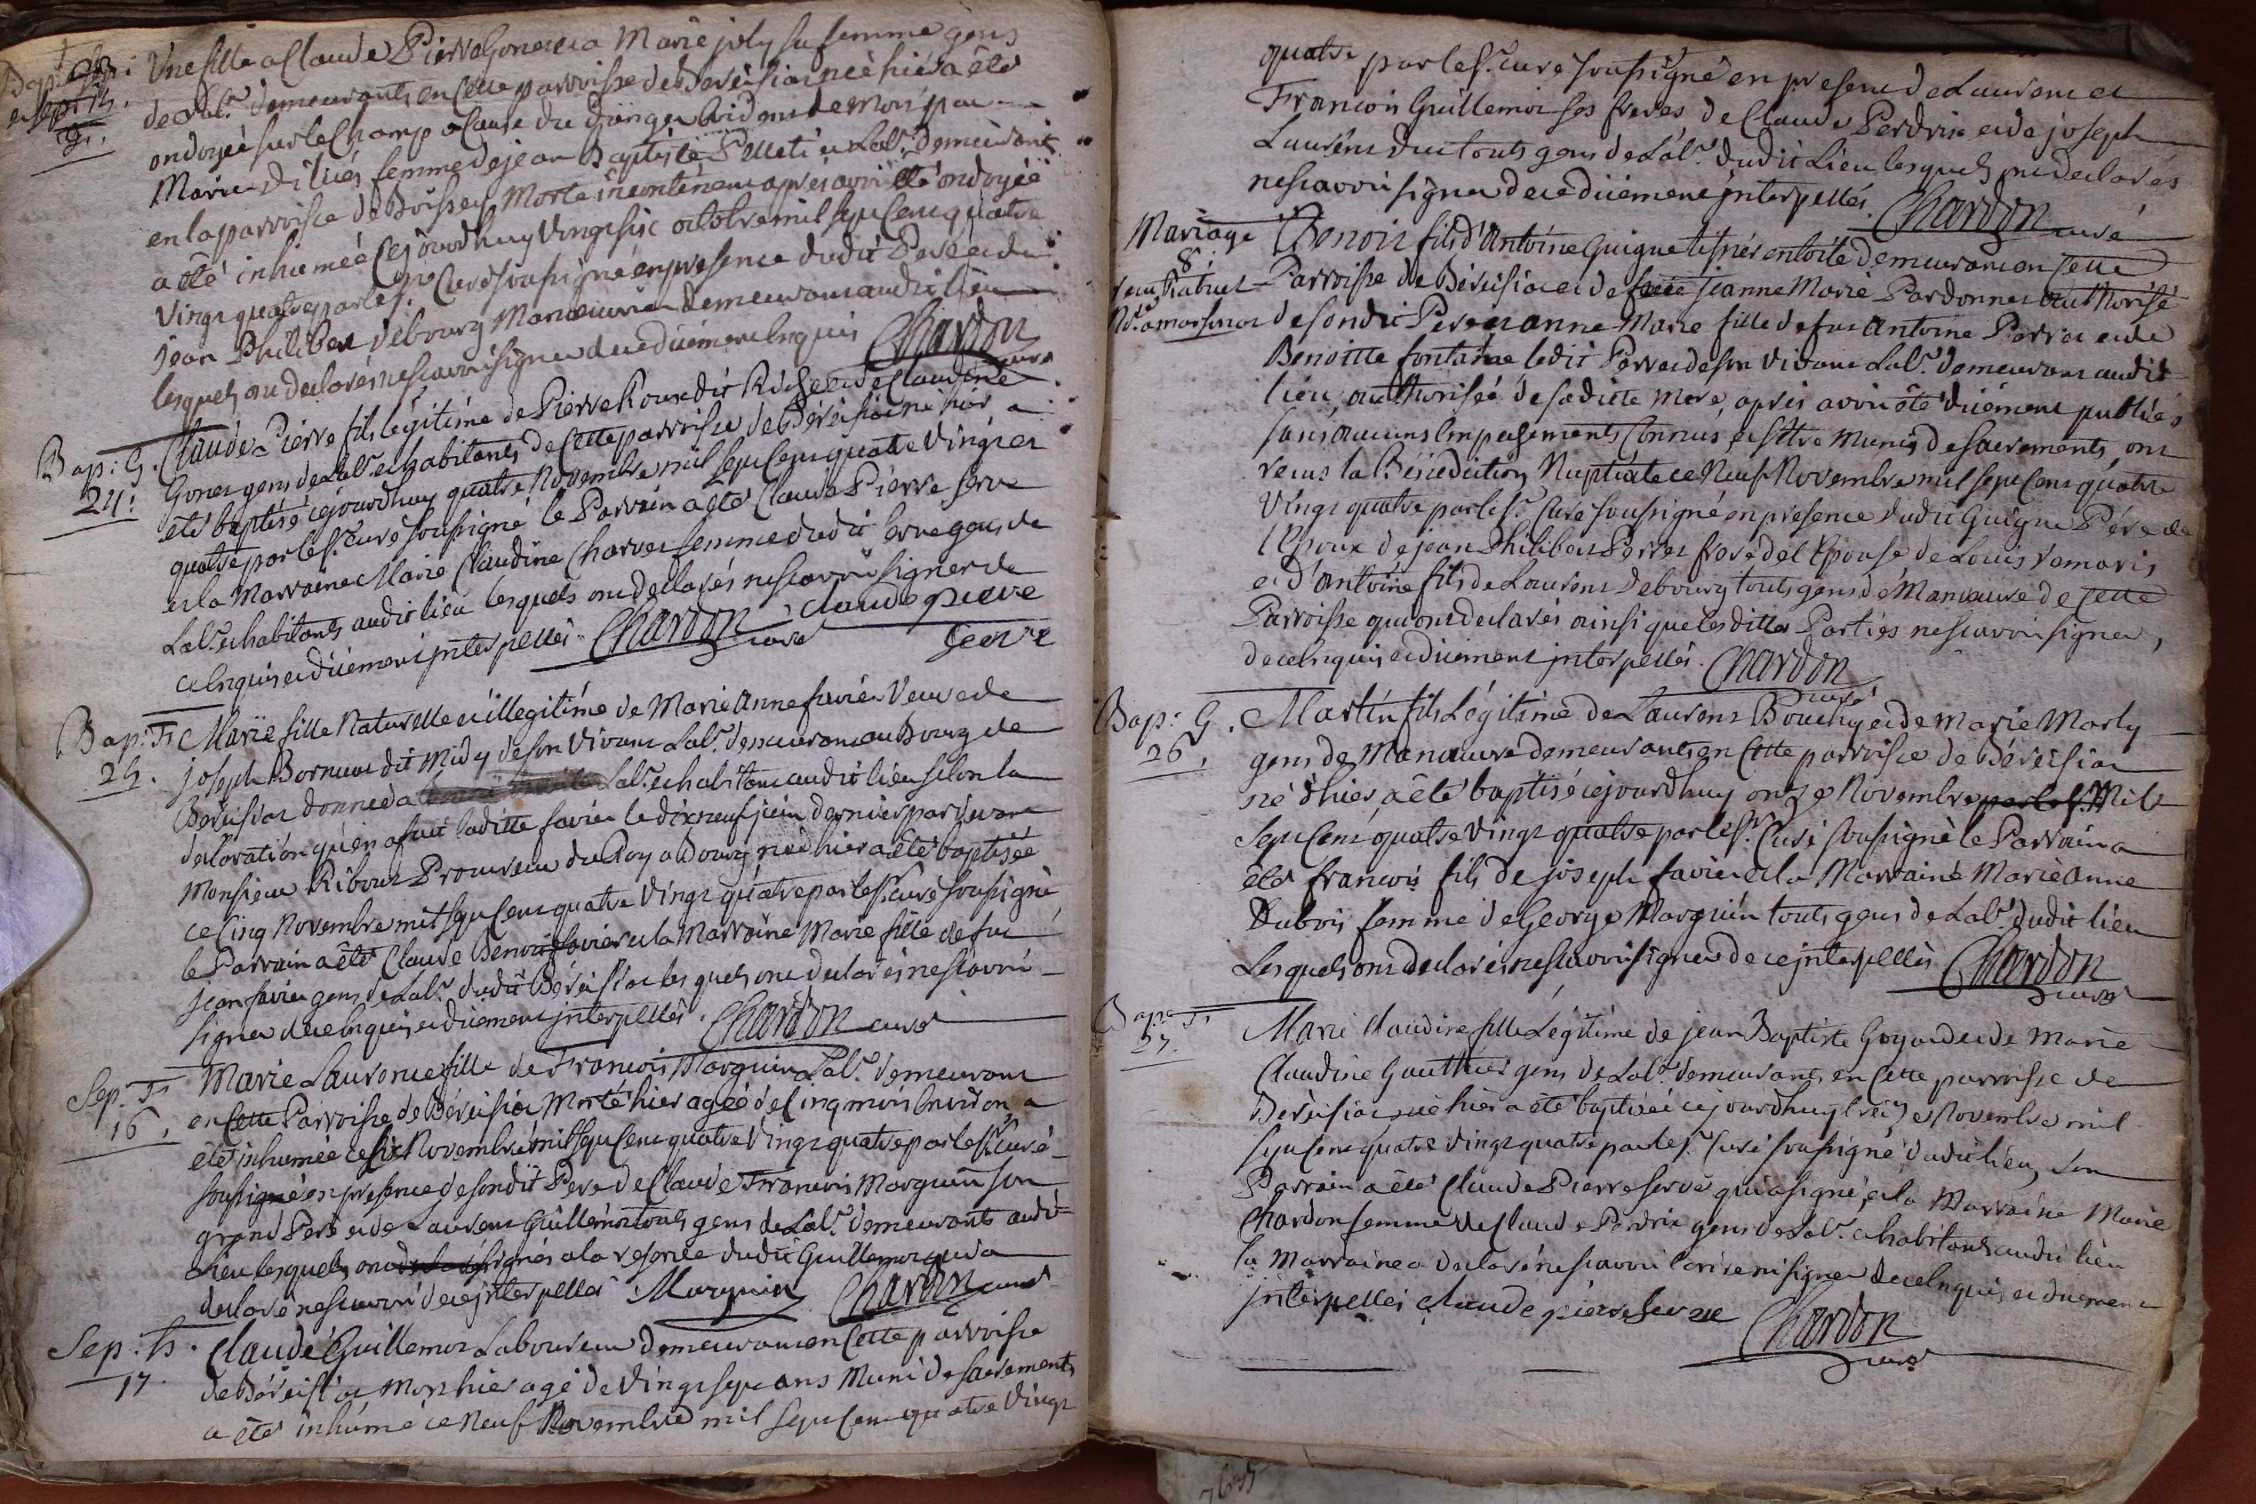 Une fille a Claude Pierre Gonet et a Marie joly sa femme gens
de Lab.r demeurants en cette parroisse de Béréisiat née hier a été
ondoyée sur le Champ a Cause du danger évident de Mort par
Marie femme de jean Baptiste Lab.r demeurant
en la parroisse de Boissey Morte incontinent apres avoir été ondoyée
a été inhumée cejourdhuy vingt six octobre mil sept Cent quatre
vingt quatre par le s.r Curé soussigné en presence dudit Pere et de
jean Philibert Debourg Manoeuvrier demeurant audit lieu
lesquels ont declarés nescavoir signer de ce duëment Enquis Chardon
curé
Bap: G. Claude Pierre fils legitime de Pierre Roux dit et de Claudine
24. Gonet gens de Lab.r et habitants de Cette parroisse de Béréisiat né hier a
été baptisé cejourdhuy quatre Novembre mil sept Cent quatre Vingt et
quatre par le s.r curé soussigné le Parrain a été Claude Pierre serve
et la Marraine Marie Claudine Charvet femme dudit serve gens de
Lab.r et habitants audit lieu lesquels ont declarés nescavoir signer de
ce Enquis et duëment interpellés. Chardon curé Claude piere
serve
Bap: F. Marie fille Naturelle et illegitime de Marie Anne favier Veuve de
25. joseph Bornuat dit Midy de son Vivant Lab.r demeurant au Bourg de
Béréisiat donnée a Lab.r et habitant audit lieu selon la
declaration qu'en a fait laditte favier le dixneuf juin dernier pardevant
Monsieur Ribout Procureur du Roy a Bourg née hier a été baptisée
ce Cinq Novembre mil sept Cent quatre Vingt quatre par le s.r curé soussigné
le Parrain a été Claude Benoit favier et la Marraine Marie fille de feu
jean favier gens de Lab.r dudit Béréisiat lesquels ont declarés nescavoir
signer de ce Enquis et duëment interpellés. Chardon curé
Sep. F. Marie Laurence fille de Francois Morguin Lab.r demeurant
16. en Cette Parroisse de Béréisiat Morte hier agée de Cinq mois Environ a
été inhumée ce six Novembre mil sept Cent quatre Vingt quatre par le s.r Curé
soussigné en presence de sondit Pere de Claude Francois Morguin son
grand Pere et de Laurent Guillemot touts gens de Lab.r demeurants audit
Lieu lesquels ont signés a la reserve dudit Guillemot qui a
declaré nescavoir de ce interpellés Morguin Chardon curé
Sep: h. Claude Guillemot Laboureur demeurant en Cette parroisse
17. de Béréisiat Mort hier agé de Vingt sept ans Muni de sacrements
a été inhumé ce Neuf Novembre mil sept Cent quatre Vingt
quatre par le s.r curé soussigné en presence de Laurent et
Francois Guillemot ses freres de Claude Perdrix et de joseph
Laurent touts gens de Lab.r dudit Lieu lesquels ont declarés
nescavoir signer de ce duëment interpellés. Chardon curé
Mariage Benoit fils d'Antoine Guigue demeurant en Cette
8. Parroisse de Béréisiat et de jeanne Marie Pardonnet autthorisé
de sondit Pere et anne Marie fille de feu Antoine Perret et de
Benoitte fontaine ledit Perret de son Vivant Lab.r demeurant audit
lieu autthorisée de saditte Mere, apres avoir été duëment publiés
sans aucuns Empechements Connus et s'être Munis de sacrements, ont
recus la Bénédiction Nuptiale ce Neuf Novembre mil sept Cent quatre
Vingt quatre par le s.r Curé soussigné en presence dudit Guigue Pére de
l'Epoux de jean Philibert Perret frere de l'Epouse de Louis
et d'Antoine fils de Laurent Debourg touts gens de Manoeuvre de Cette
Parroisse qui ont declarés ainsi que lesdittes Parties nescavoir signer,
de ce Enquis et duëment interpellés. Chardon
curé
Bap: G. Martin fils Légitime de Laurent Bouchy et de Marie Marly
26. gens de Manoeuvre demeurants en Cette parroisse de Béréisiat
né d'hier a été baptisé cejourdhuy onze Novembre par le s.r Mil
sept Cent quatre Vingt quatre par le s.r Curé soussigné le Parrain a
été francois fils de joseph favier et la Marraine Marie Anne
Dubois femme de George Morguin touts gens de Lab.r dudit lieu
Lesquels ont declarés nescavoir signer de ce interpellés Chardon
curé
Bap. F. Marie Claudine fille Légitime de jean Baptiste Goyard et de Marie
27. Claudine Gauthier gens de Lab.r demeurants en Cette parroisse de
Béréisiat née hier a été baptisée cejourdhuy treize Novembre mil
sept Cent quatre Vingt quatre par le s.r Curé soussigné dudit lieu, son
Parrain a été Claude Pierre serve qui a signé, et la Marraine Marie
Chardon femme de Claude Perdrix gens de Lab.r et habitants audit lieu
la Marraine a declaré nescavoir Ecrire ni signer de ce Enquis et duëment
interpellés claude piere serve Chardon
curé